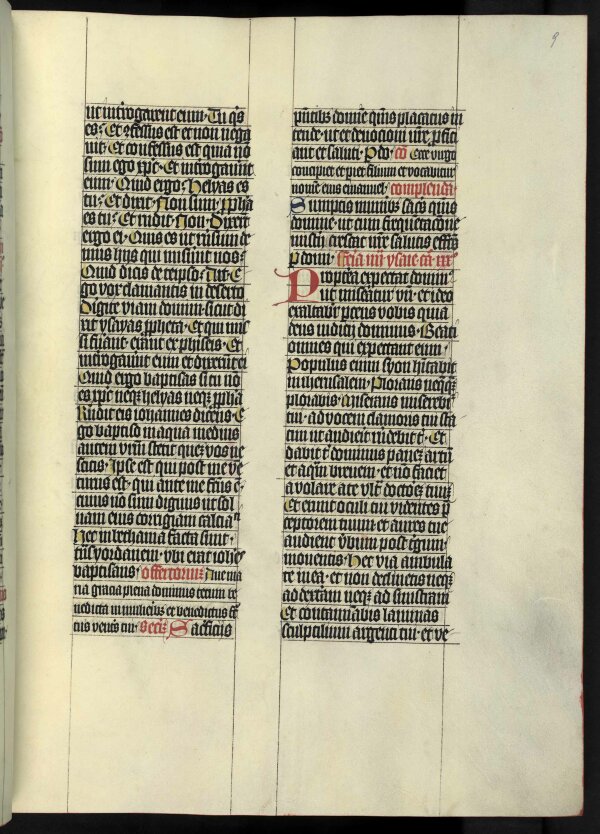 9
ut introgarent eum. Tu q̄s
es. Et ɔfessus est et non nega
uit. Et confessus est quia nō
sum ego xpc. Et introgaueūt
eum. Quid ergo. Helyas es
tu. Et dixit. Non sum. ꝓpha
es tu. Et rūdit. Non. Dixert̄
ergo ei. Quis es ut rn̄sum de
mus hijs qui miserūt nos.
Quid dicis de teipso. Ait. E
go vox clamantis in deserto
Dirigite viam domini. sicut di
xit ysayas ꝓpheta. Et qui mis
si fuānt. erant ex phiseis. Et
introgauert̄ eum et dixerūt ei
Quid ergo baptisas si tu nō
es xpc neqꝫ helyas neqꝫ ꝓpha
Rūdit eis iohannes dicens. E
go baptiso in aqua medius
autem vrm̄ stetit quez vos ne
scitis. Ipse est qui post me ve
turus est. qui ante me fcūs ē.
cuius nō sum dignus ut sol
uam eius corrigiam calciāti
Hec in bethania facta sunt.
trās yordanem. vbi erat iohēs
baptisans. offertoriuꝫ Aue ma
ria gracia plena dominus tecum be
nedicta in mulieribꝫ et benedictus fru
ctus ventris tui. Secrꝫ Sacrificijs
pn̄tibꝫ domine qs̄ placatus in
tende. ut et deuocioni nr̄e ꝓfici
ant et saluti. P do. cō Ecce virgo
concipiet et pariet filium et vocabitur
nomē eius emanuel. complenda.
Sumptis muneribꝫ sacris qs̄us
domine. ut cum frequentacōne
misterij crescat nr̄e salutis effcūs
P domī. feria iiij ysaie ca xxx
Propterea expectat domin̄
ut misereatur vri. et ideo
exaltabit̄ parcens vobis quia
deus iudicij dominus. Beati
omnes qui expectant eum.
Populus enim syon hītabit
in iherusalem. Plorans neqꝫqꝫ
plorabis. Miserans miserebit̄
tui. ad vocem clamoris tui sta
tim ut audierit rn̄debit t̄. Et
dabit t̄ dominus panez artū
et aqm̄ breuem. et nō faciet
a volare a te vlt̄ doctorē tuuꝫ
Et erunt oculi tui videntes p̄
ceptorem tuum. et aures tue
audient v̄bum post t̄gum
monentis. Hec via ambula
te in ea. et non declinetis neqꝫ
ad dextram neqꝫ ad sinistram
Et contaminabis laminas
sculptilium argenti tui. et ve